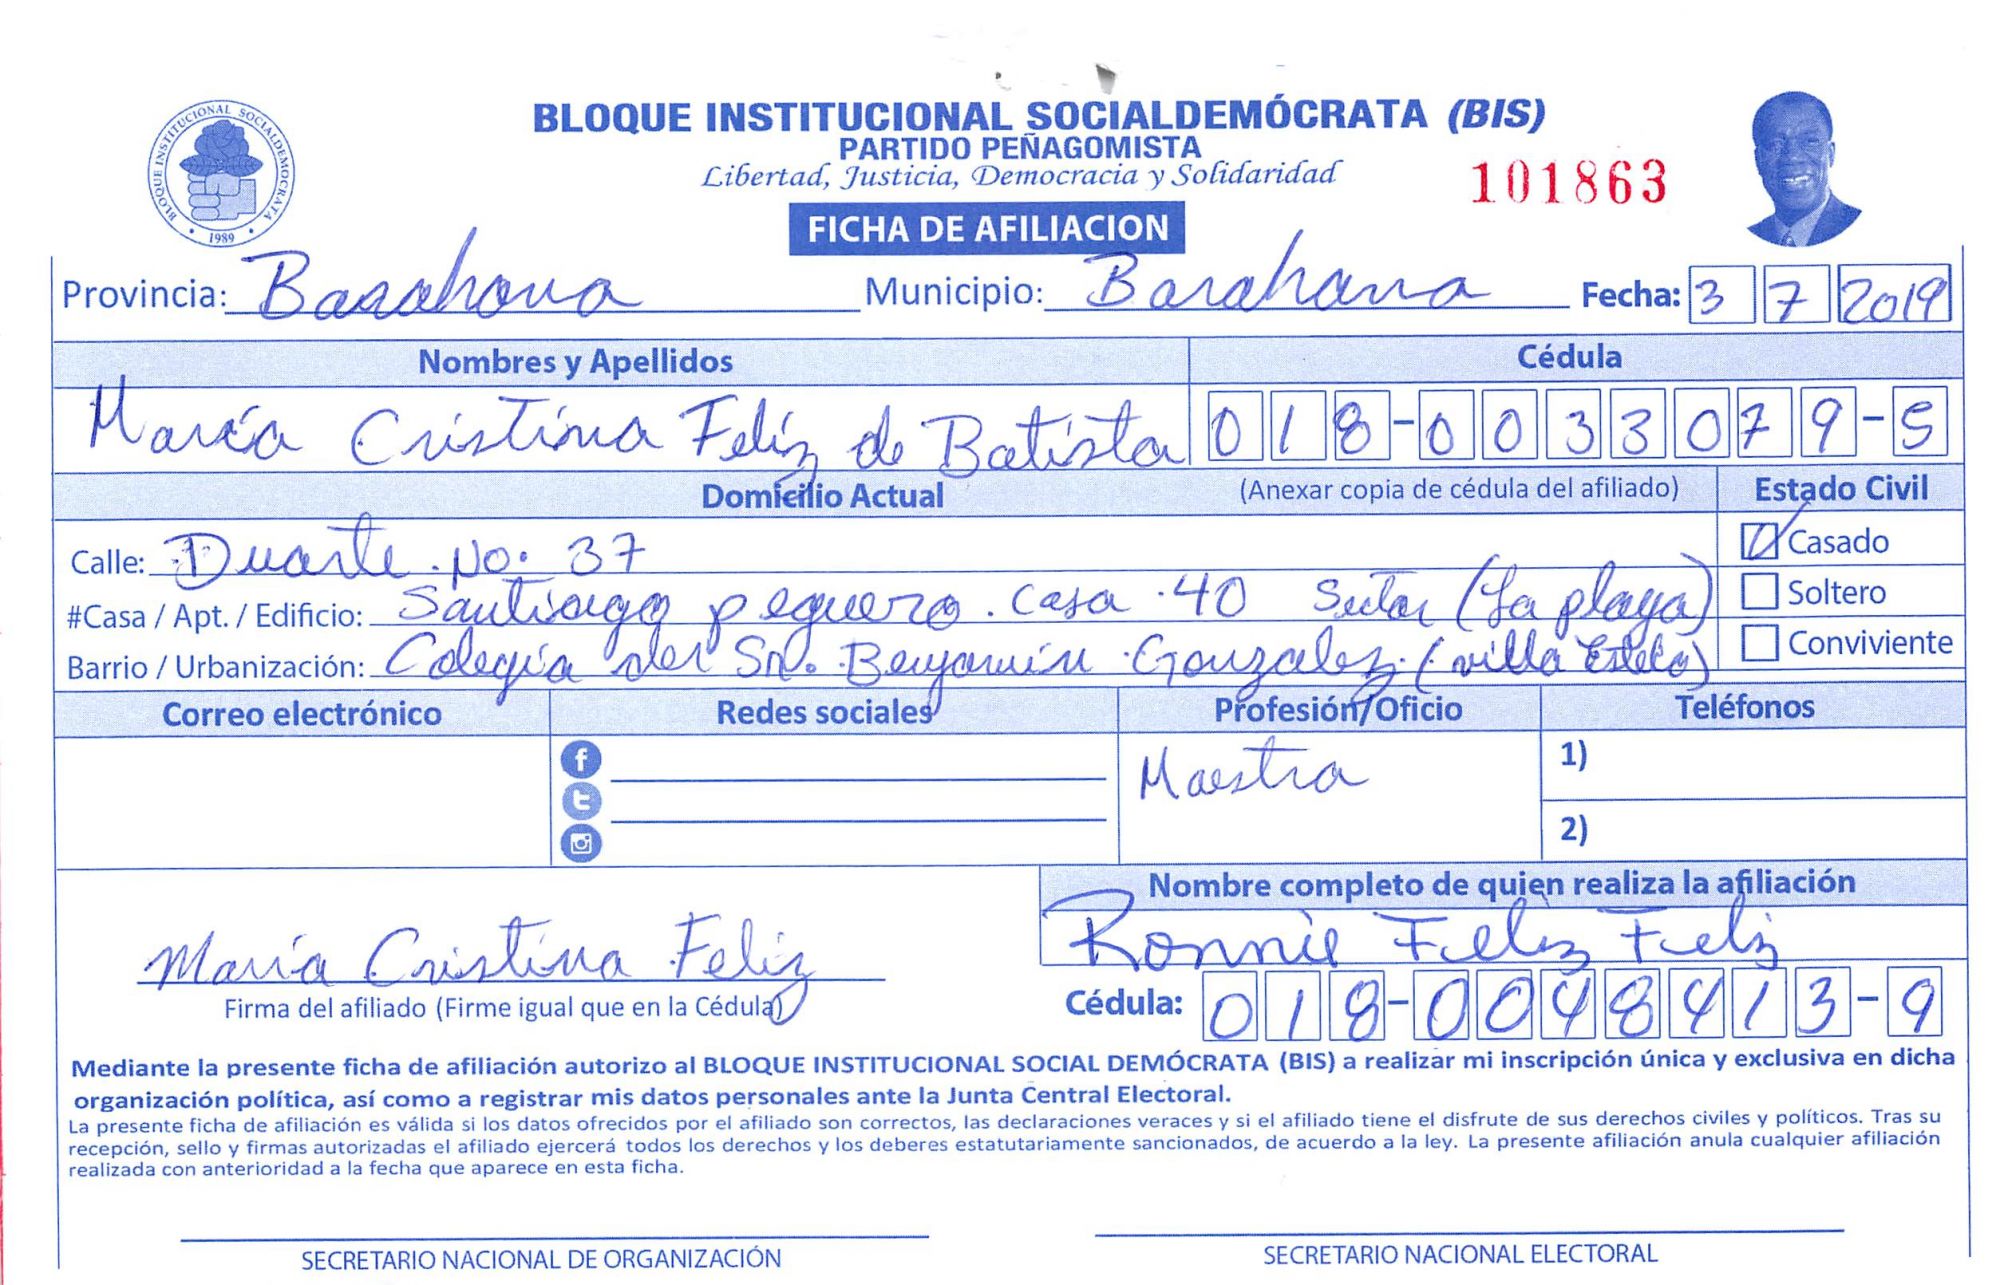 BLOQUE INSTITUCIONAL SOCIALDEMÓCRATA (BIS)
PARTIDO PEÑAGOMISTA
Libertad, Justicia, Democracia y Solidaridad
101863
BLOQUE INSTITUCIONAL SOCIALDEMOCRATA
1989
FICHA DE AFILIACION
Provincia: Barahona Municipio: Barahona Fecha: 3 7 2019
Nombres y Apellidos Cédula
María Cristina Feliz de Batista 018-0033079-5
Domicilio Actual (Anexar copia de cédula del afiliado) Estado Civil
Calle: Duarte. No. 37 Casado
#Casa / Apt. / Edificio: Santiago peguero. casa. 40 Sector (La playa) Soltero
Barrio / Urbanización: Colegia del Sr. Benjamin Gonzalez. (villa Estela) Conviviente
Correo electrónico Redes sociales Profesión/Oficio Teléfonos
Maestra 1)
2)
Nombre completo de quien realiza la afiliación
María Cristina Feliz Ronnie Feliz Feliz
Firma del afiliado (Firme igual que en la Cédula) Cédula: 018-0048413-9
Mediante la presente ficha de afiliación autorizo al BLOQUE INSTITUCIONAL SOCIAL DEMÓCRATA (BIS) a realizar mi inscripción única y exclusiva en dicha
organización política, así como a registrar mis datos personales ante la Junta Central Electoral.
La presente ficha de afiliación es válida si los datos ofrecidos por el afiliado son correctos, las declaraciones veraces y si el afiliado tiene el disfrute de sus derechos civiles y políticos. Tras su
recepción, sello y firmas autorizadas el afiliado ejercerá todos los derechos y los deberes estatutariamente sancionados, de acuerdo a la ley. La presente afiliación anula cualquier afiliación
realizada con anterioridad a la fecha que aparece en esta ficha.
SECRETARIO NACIONAL DE ORGANIZACIÓN SECRETARIO NACIONAL ELECTORAL